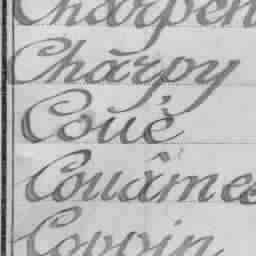 Charpen
Charpy
Coué
Couâmes
Coppin